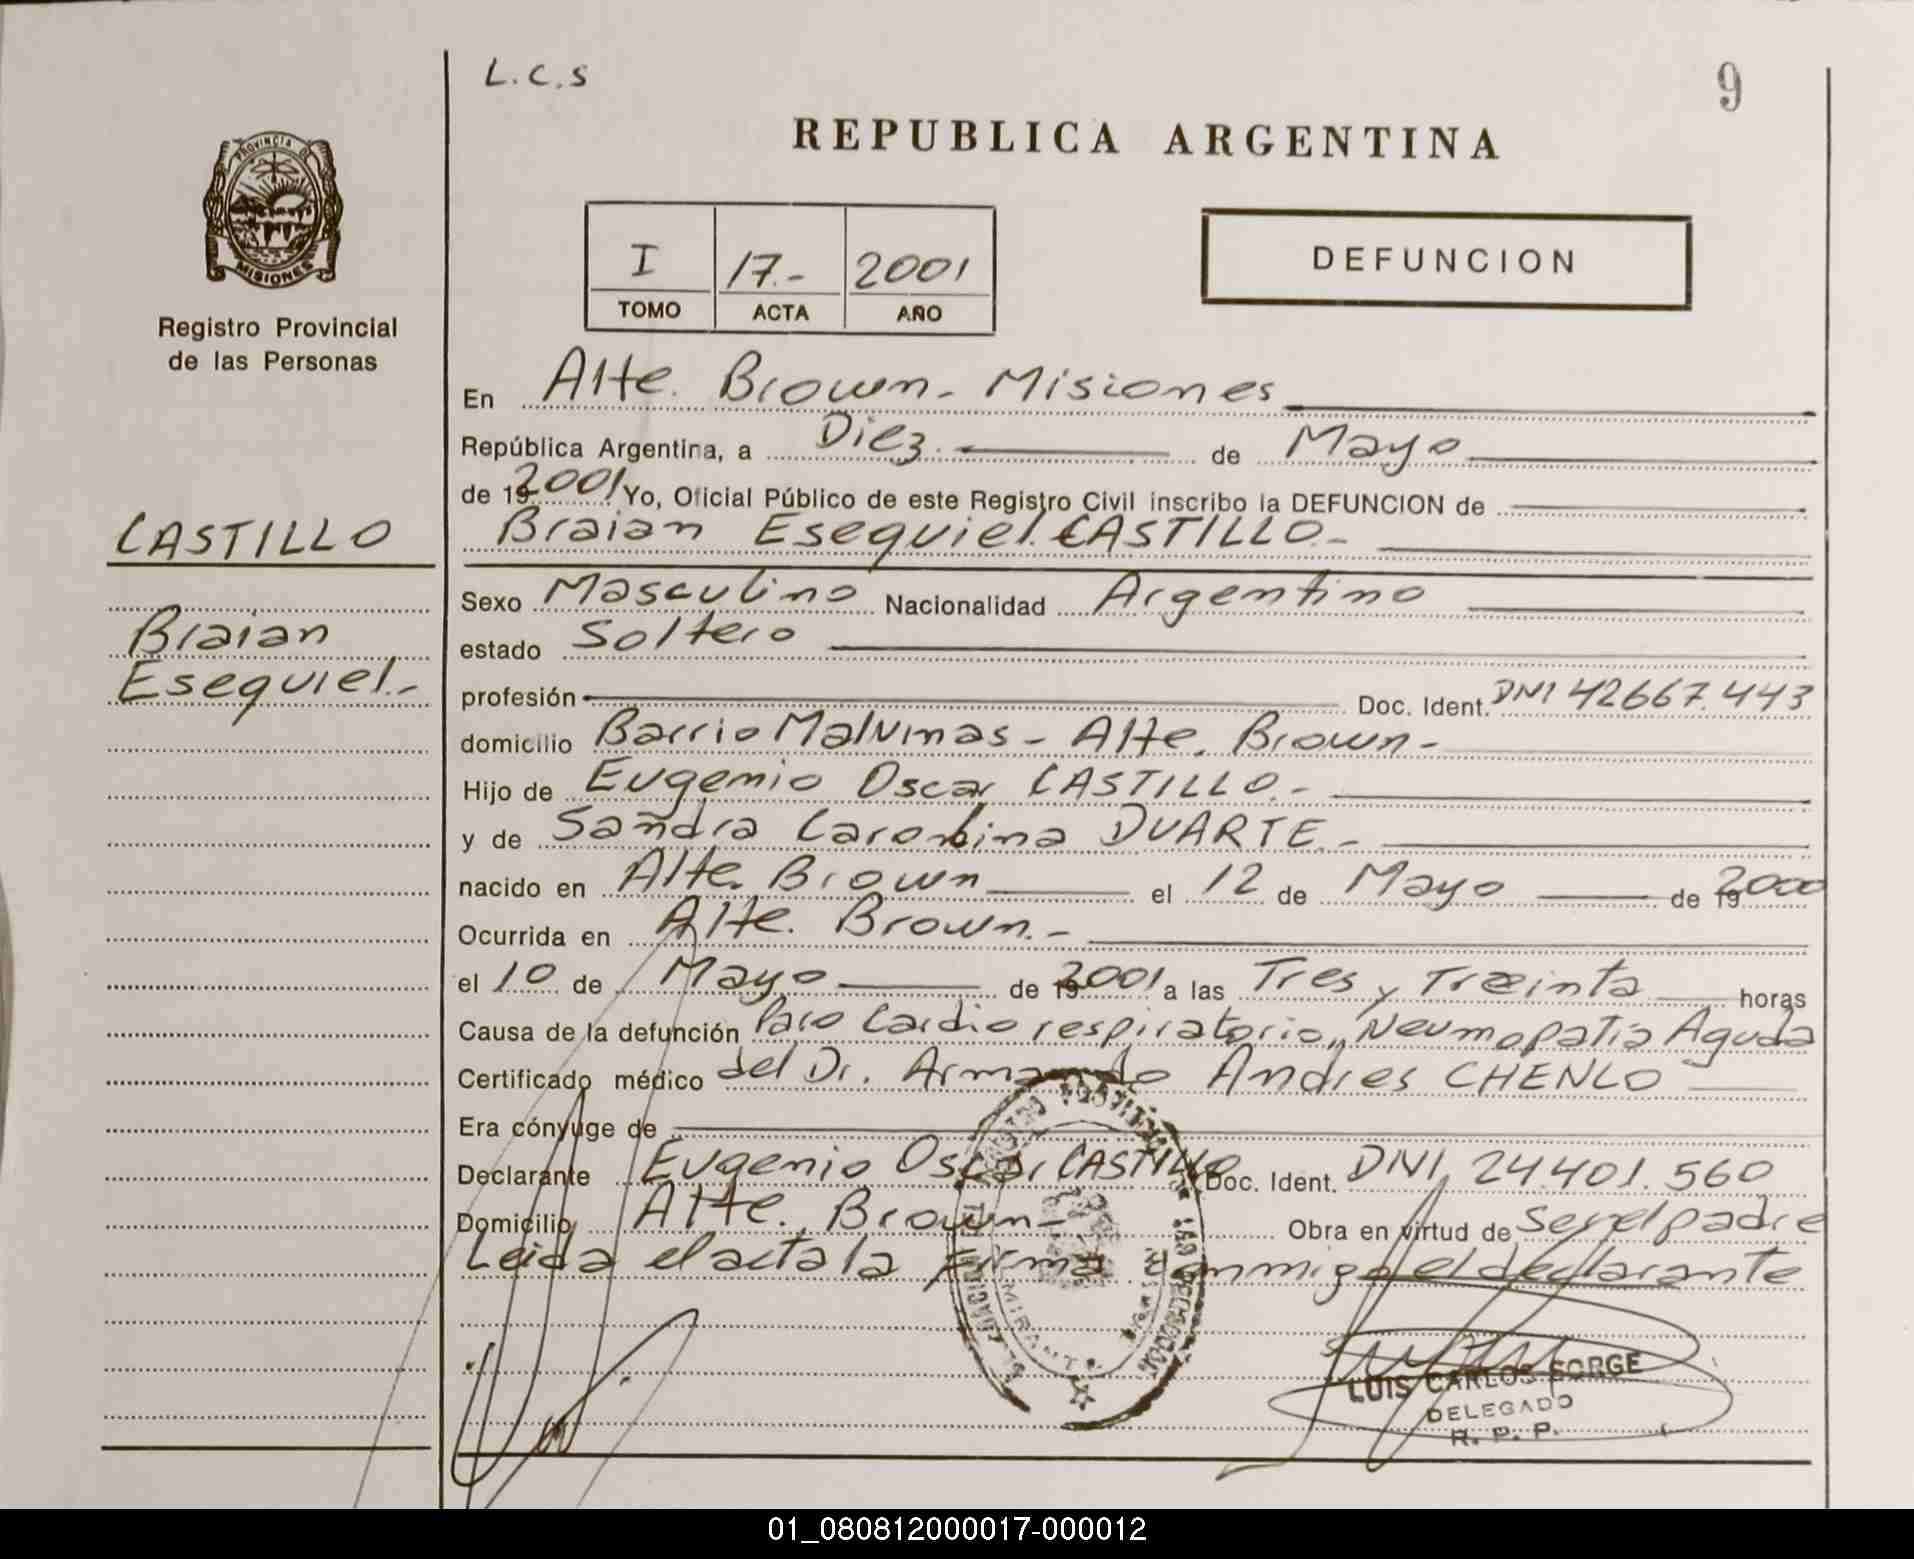 L.C.S
9
REPUBLICA ARGENTINA
PROVINCIA DE
MISIONES
Registro Provincial
de las Personas
I 17.- 2001
TOMO ACTA AÑO
DEFUNCION
En Alte. Brown - Misiones
República Argentina, a Diez. de Mayo
de 19 2001 Yo, Oficial Público de este Registro Civil inscribo la DEFUNCION de
CASTILLO
Braian Esequiel CASTILLO.-
Sexo Masculino Nacionalidad Argentino
Braian
estado Soltero
Esequiel.-
profesión Doc. Ident. DNI 42667.443
domicilio Barrio Malvinas - Alte. Brown-
Hijo de Eugenio Oscar CASTILLO.-
y de Sandra Carolina DUARTE.-
nacido en Alte. Brown el 12 de Mayo de 19 2000
Ocurrida en Alte. Brown.-
el 10 de Mayo de 19 2001 a las Tres y Treinta horas
Causa de la defunción Paro Cardio respiratorio, Neumopatia Aguda
Certificado médico del Dr. Armando Andres CHENLO
Era cónyuge de
Declarante Eugenio Oscar CASTILLO Doc. Ident. DNI. 24.401.560
Domicilio Alte. Brown- Obra en virtud de ser el padre
Leida el acta la firma conmigo el declarante
LUIS CARLOS SORGE
DELEGADO
R. P. P.
01_080812000017-000012